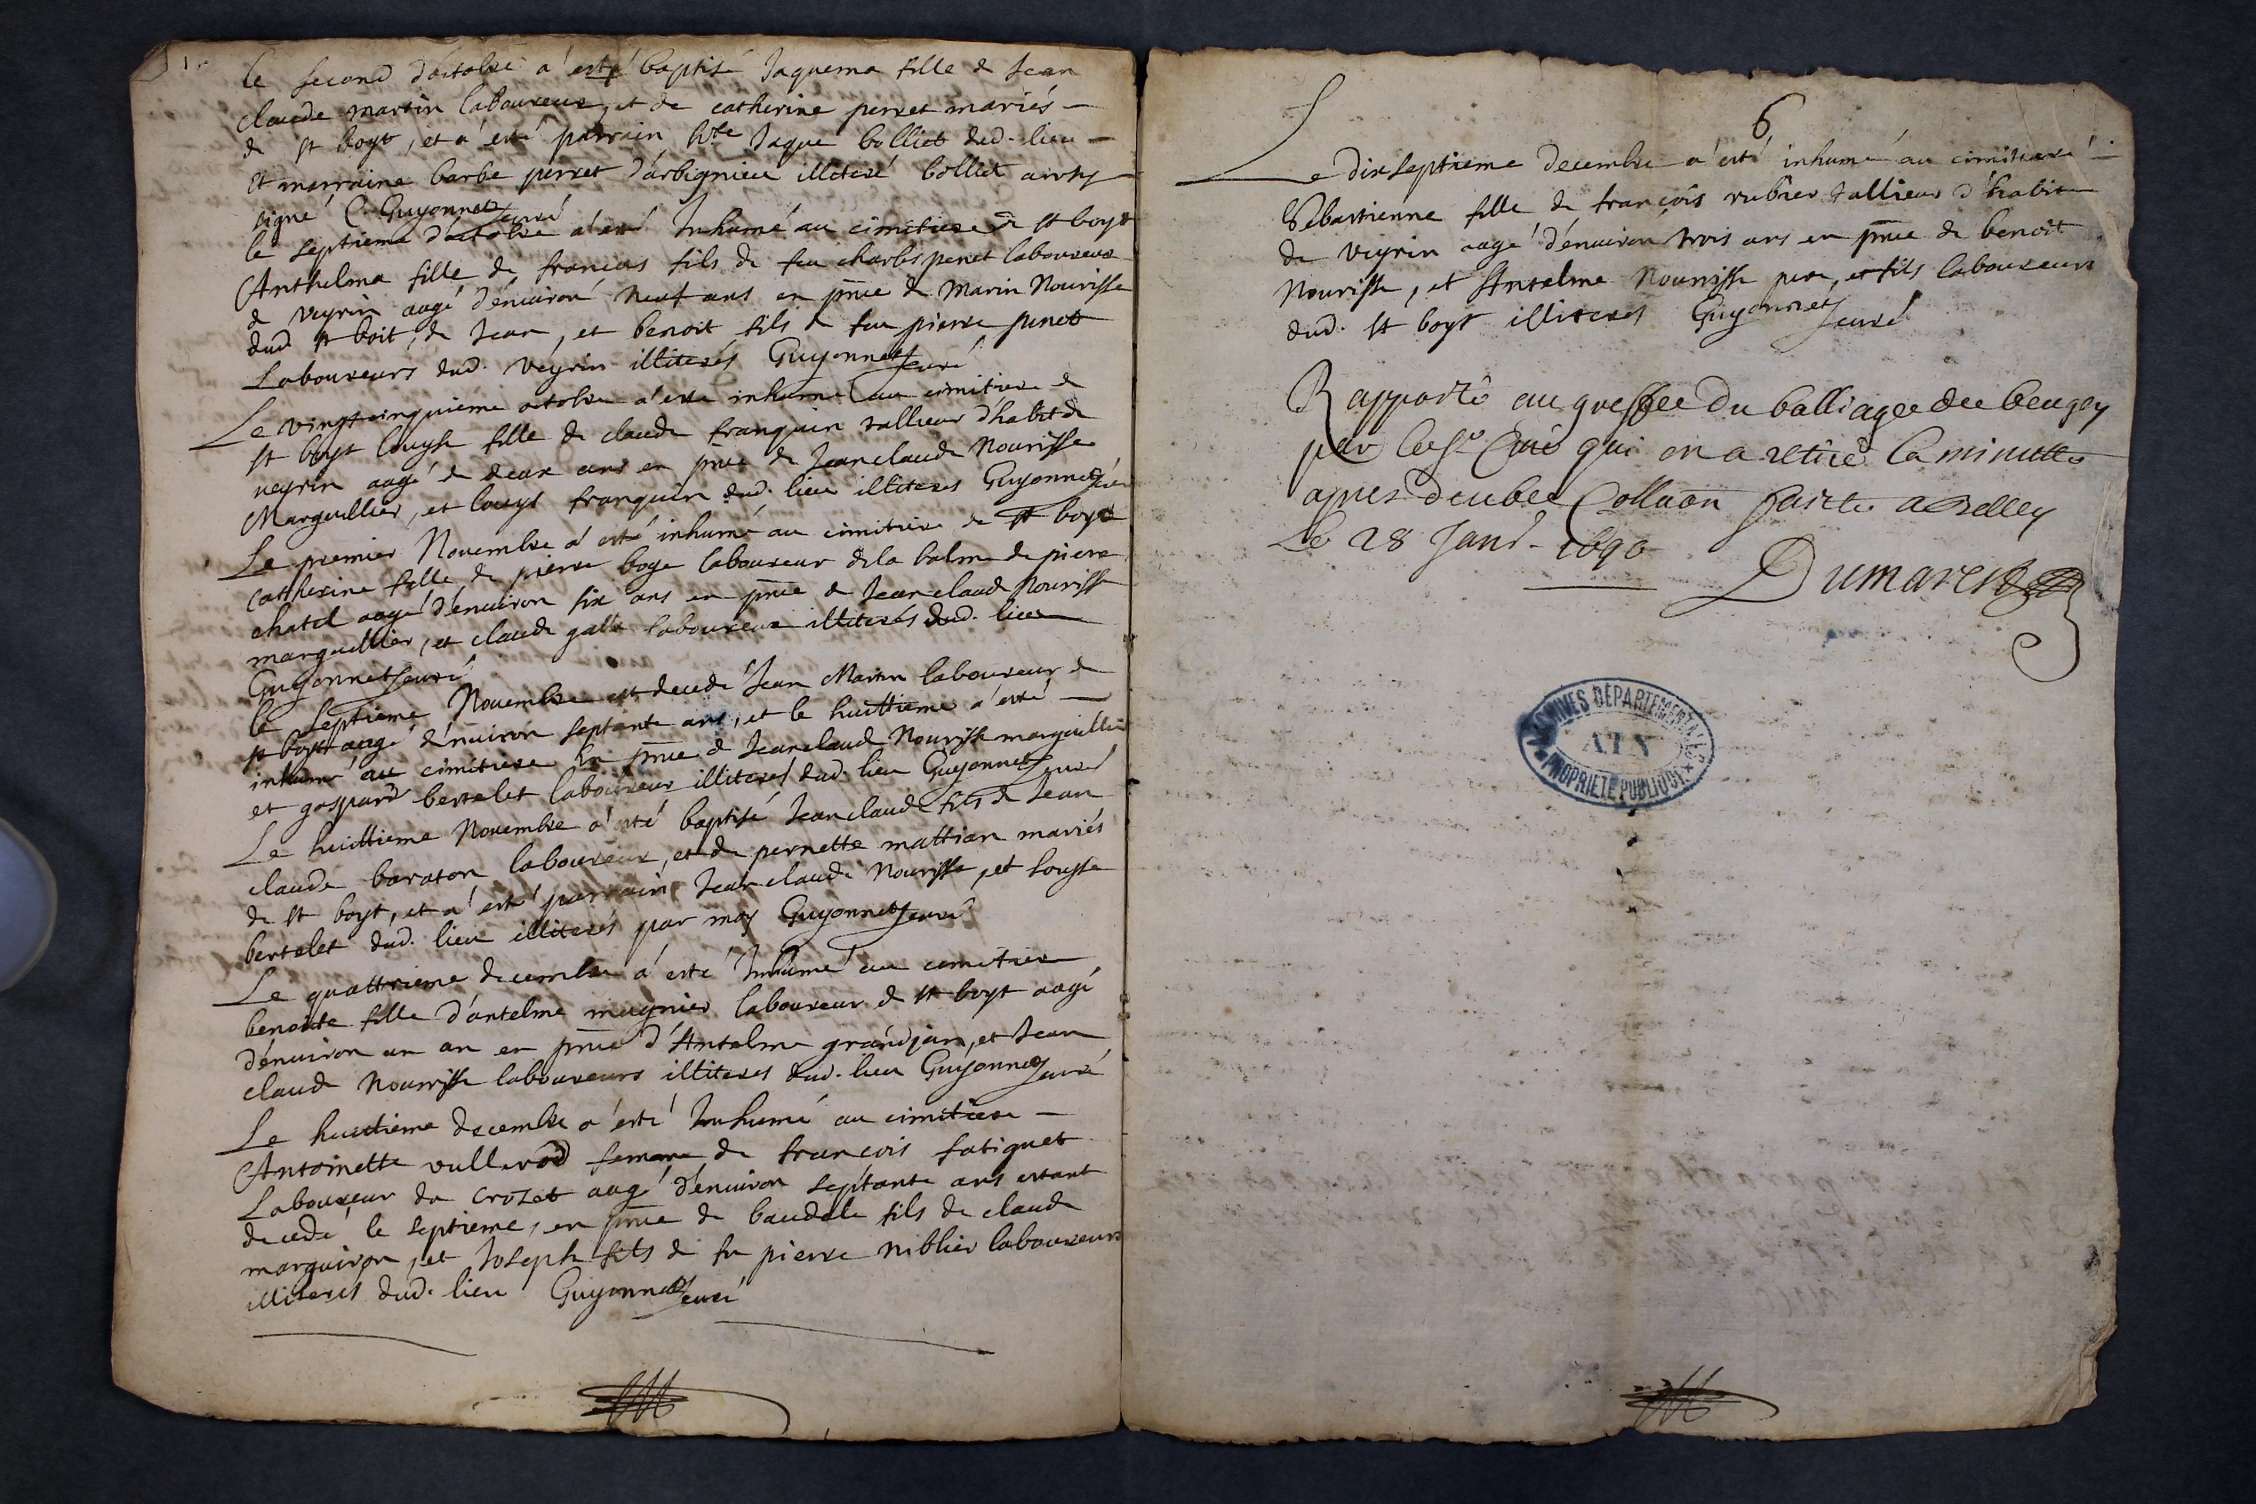 le second d'octobre a esté baptisé Jaquema fille de Jean
claude martin laboureur, et de catherine perret mariés
de st boyt, et a esté parrain hble Jaque bolliet dud. lieu
et marraine barbe perret d'arbignieu illiteré bolliet
signé C. Guyonnet curé
le septieme d'octobre a esté Inhumé au cimitiere de st boyt
Anthelma fille de francois fils de feu charles penet laboureur
de veyrin aagé d'enuiron neuf ans en pnce de marin Nourisse
dud st boit, de Jean, et benoit fils de feu pierre penet
Laboureurs dud. veyrin illiterés Guyonnet curé
Le vingtcinquiéme octobre a esté inhumé au cimitiere de
st boyt louyse fille de claude franquin tallieur d'habit de
veyrin aagé de deux ans en pnce de Jeanclaude Nourisse
Marguillier, et louys franquin dud. lieu illiteres Guyonnet curé
Le premier Novembre a esté inhumé au cimitiere de st boyt
catherine fille de pierre boge laboureur de la balme de pierre
chatel aagé d'enuiron six ans en pnce de Jean claude Nourisse
marguillier, et claude galle laboureur illiterés dud. lieu
Guyonnet curé
le septieme Novembre est decedé Jean Martin laboureur de
st boyt aagé d'enuiron septante ans, et le huittieme a esté
inhumé au cimitiere En pnce de Jeanclaude Nourisse marguillier
et gaspard bertelet laboureur illiteres dud. lieu Guyonnet curé
Le huittieme Novembre a esté baptisé Jeanclaude fils de Jean
claude baraton laboureur, et de pernette mattian mariés
de st boyt, et a esté parrain Jean claude Nourisse, et louyse
bertelet dud. lieu illiterés par moy Guyonnet curé
Le quattrieme decembre a esté Inhumé au cimitiere
benoite fille d'antelme mugnier laboureur de st boyt aagé
d'enuiron un an en pnce d'Antelme grandjan, et Jean
claude Nourrisse laboureurs illiteres dud. lieu Guyonnet curé
Le huitieme decembre a esté Inhumé au cimitiere
Antoinette vullerod femme de francois fatiguet
Laboureur du crozet aagé d'enuiron septante ans estant
decedé le septieme, en pnce de baudele fils de claude
marguiron, et Joseph fils de fu pierre niblier laboureurs
illiterés dud. lieu Guyonnet curé
6
Le dixseptieme decembre a esté inhumé au cimitiere
Sebastienne fille de françois rubier tallieur d'habit
de veyrin aagé d'enuiron trois ans en pnce de benoit
Nourisse, et Antelme Nourrisse pere, et fils laboureurs
dud. st boyt illiteres Guyonnet curé
Rapporté au greffee du balliagee du beugey
par le sr Curé qui en a retiré la minutte
apres deube Collaon faicte a Belley
Le 28 Janr. 1690
Dumarest
ARCHIVES DÉPARTEMENTALES
AIN
PROPRIÉTÉ PUBLIQUE